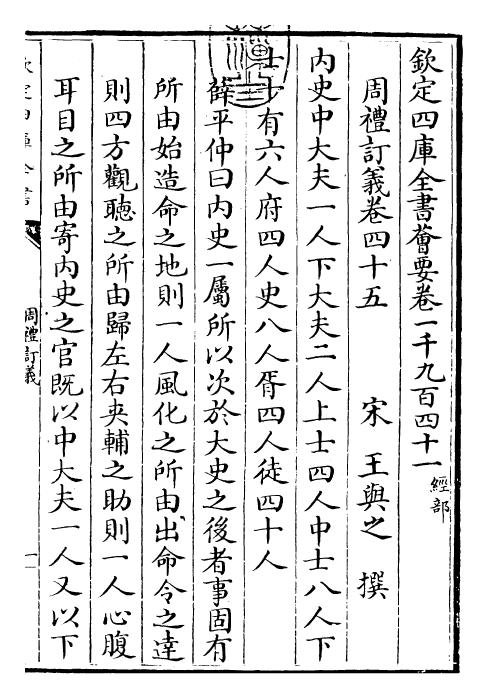 欽定四庫全書薈要卷一千九百四十一 經部
周禮訂義卷四十五 宋 王與之 撰
内史中大夫一人下大夫二人上士四人中士八人下
士十有六人府四人史八人胥四人徒四十人
薛平仲曰内史一屬所以次於大史之後者事固有
所由始造命之地則一人風化之所由出命令之達
則四方觀聽之所由歸左右夾輔之助則一人心腹
耳目之所由寄内史之官既以中大夫一人又以下
欽定四庫全書
周禮訂義
一